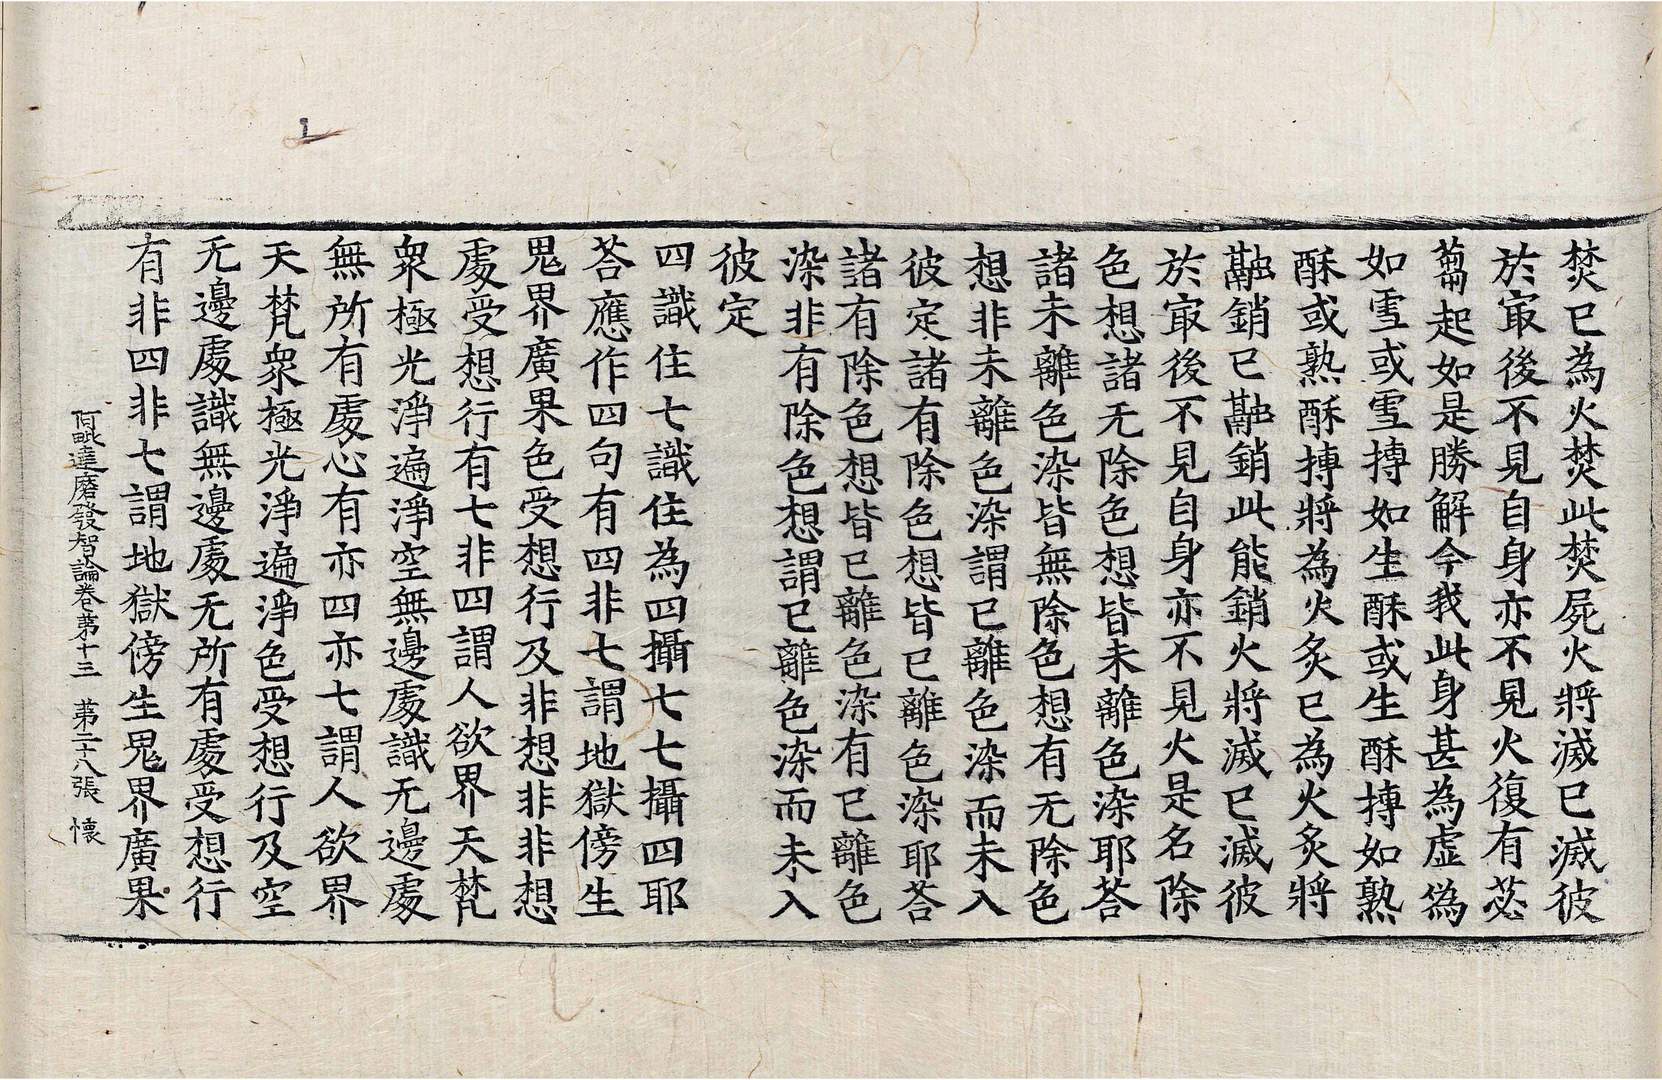 焚已為火焚此焚屍火將滅已滅彼
於冣後不見自身亦不見火復有苾
蒭起如是勝解今我此身甚為虛偽
如雪或雪摶如生酥或生酥摶如熟
酥或熟酥摶將為火炙已為火炙將
融銷已融銷此能銷火將滅已滅彼
於冣後不見自身亦不見火是名除
色想諸无除色想皆未離色染耶荅
諸未離色染皆無除色想有无除色
想非未離色染謂已離色染而未入
彼定諸有除色想皆已離色染耶荅
諸有除色想皆已離色染有已離色
染非有除色想謂已離色染而未入
彼定
四識住七識住為四攝七七攝四耶
荅應作四句有四非七謂地獄傍生
鬼界廣果色受想行及非想非非想
處受想行有七非四謂人欲界天梵
衆極光淨遍淨空無邊處識无邊處
無所有處心有亦四亦七謂人欲界
天梵衆極光淨遍淨色受想行及空
无邊處識無邊處无所有處受想行
有非四非七謂地獄傍生鬼界廣果
阿毗達磨發智論卷苐十三 苐二十八張 懷